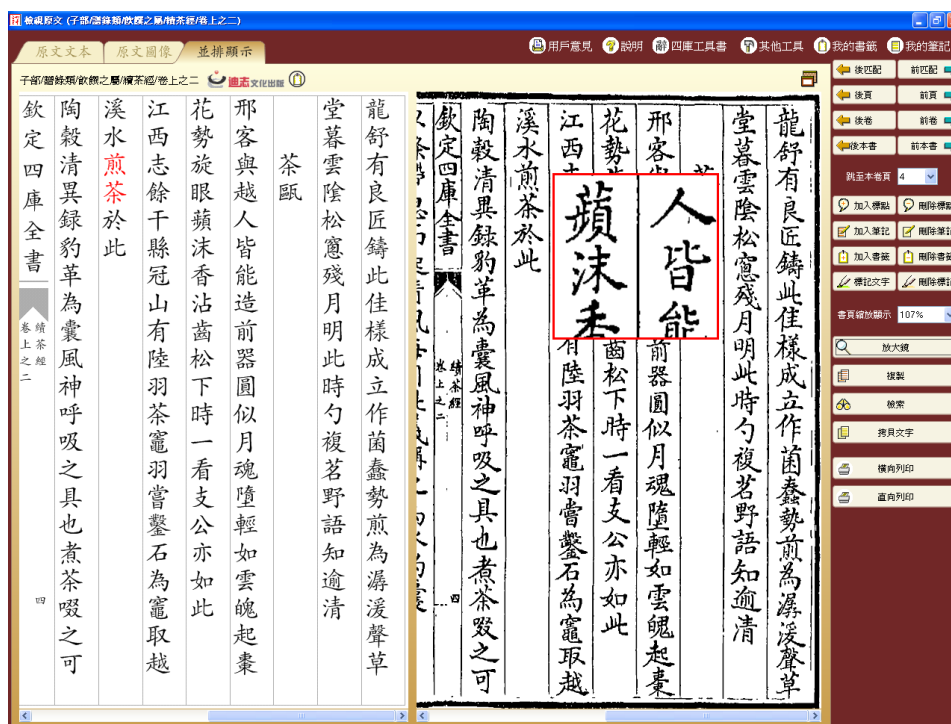 檢視原文 (子部/譜錄類/飲饌之屬/續茶經/卷上之二)
原文文本
原文圖像
並排顯示
用戶意見
說明
四庫工具書
其他工具
我的書籤
我的筆記
子部/譜錄類/飲饌之屬/續茶經/卷上之二
迪志文化出版
龍舒有良匠鑄此佳樣成立作菌蠢勢煎為潺湲聲草
堂暮雲陰松窻殘月明此時勺複茗野語知逾清
茶甌
邢客與越人皆能造前器圓似月魂墮輕如雲魄起棗
花勢旋眼蘋沫香沾齒松下時一看支公亦如此
江西志餘干縣冠山有陸羽茶竈羽嘗鑿石為竈取越
溪水煎茶於此
陶穀清異録豹革為囊風神呼吸之具也煮茶啜之可
欽定四庫全書
續茶經
卷上之二
四
龍舒有良匠鑄此佳樣成立作菌蠢勢煎為潺湲聲草
堂暮雲陰松窻殘月明此時勺複茗野語知逾清
邢客
前器圓似月魂墮輕如雲魄起棗
人皆能
花勢
齒松下時一看支公亦如此
蘋沫香
江西
有陸羽茶竈羽嘗鑿石為竈取越
溪水煎茶於此
陶穀清異録豹革為囊風神呼吸之具也煮茶啜之可
欽定四庫全書
續茶經
卷上之二
四
後匹配
前匹配
後頁
前頁
後卷
前卷
後本書
前本書
跳至本卷頁
4
加入標點
刪除標點
加入筆記
刪除筆記
加入書籤
刪除書籤
標記文字
刪除標記
書頁縮放顯示
107%
放大鏡
複製
檢索
拷貝文字
橫向列印
直向列印